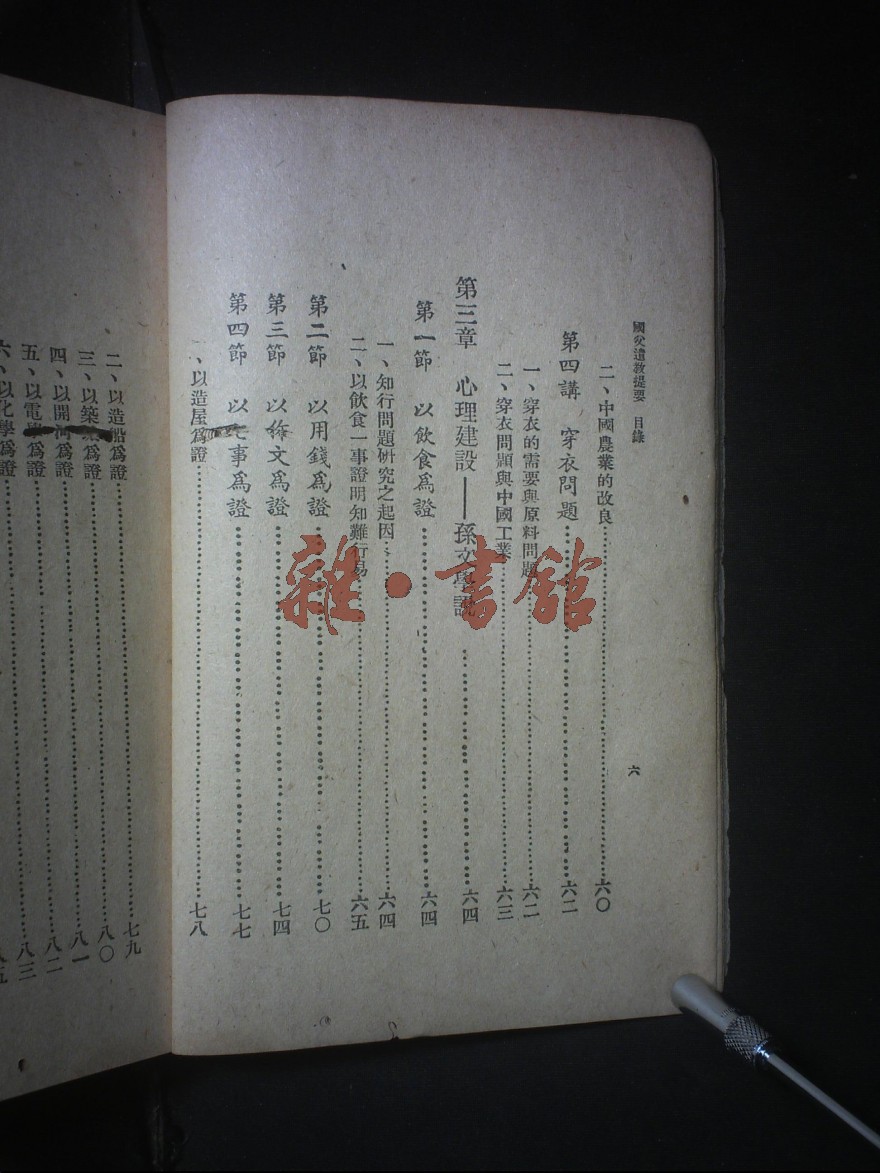 國父遺教提要 目錄 六
二、中國農業的改良 六〇
第四講 穿衣問題 六二
一、穿衣的需要與原料問題 六二
二、穿衣問題與中國工業 六三
第三章 心理建設——孫文學說 六四
第一節 以飲食為證 六四
一、知行問題研究之起因 六四
二、以飲食一事證明知難行易 六五
第二節 以用錢為證 七〇
第三節 以作文為證 七四
第四節 以事為證 七七
、以造屋為證 七八
二、以造船為證 七九
三、以築為證 八〇
四、以開河為證 八一
五、以電為證 八二
六、以化學為證 八三
雜·書館